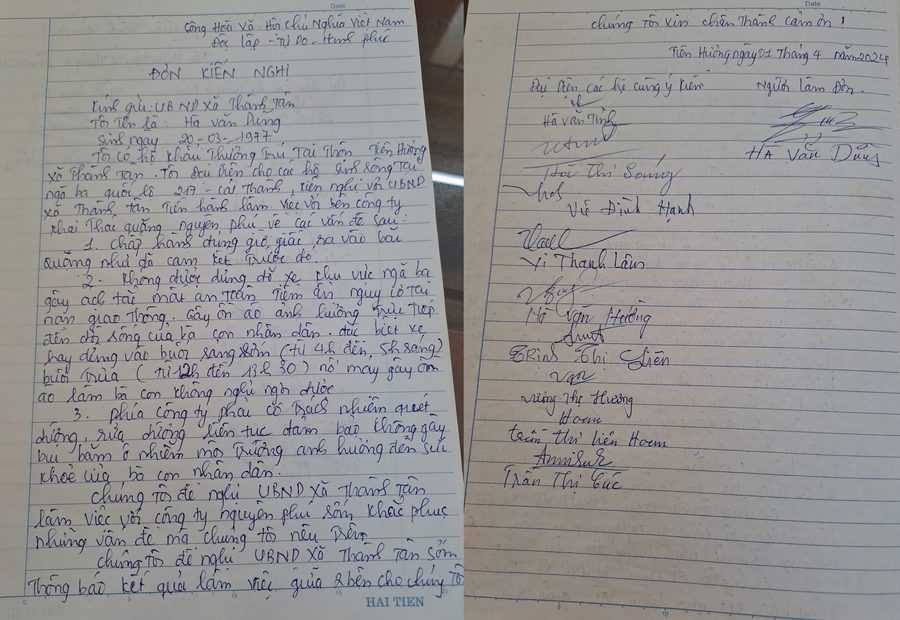 Date
Cộng Hoà Xã Hội Chủ Nghĩa Việt Nam
Độc lập - Tự Do - Hạnh phúc
ĐƠN KIẾN NGHỊ
Kính gửi: UBND Xã Thành Tân
Tôi tên là: Hà Văn Dung
Sinh ngày 20-03-1977
Tôi có hộ khẩu thường trú tại thôn Tiên Hưởng
xã Thành Tân. Tôi Đại diện cho các hộ sinh sống tại
ngã ba quốc lộ 217 - cái Thanh, kiến nghị với UBND
xã Thành Tân Tiến hành làm việc với bên công ty
khai Thác quặng nguyên phú về các vấn đề sau:
1. chấp hành đúng giờ giấc ra vào bãi
quặng như đã cam kết trước đó.
2. Không được dừng đỗ xe khu vực ngã ba
gây ách tắc mất an toàn Tiềm ẩn nguy cơ tai
nạn giao thông. Gây ồn ào ảnh hưởng trực tiếp
đến đời sống của bà con nhân dân. đặc biệt xe
hay dừng vào buổi sáng sớm (từ 4h đến 5h sáng)
buổi trưa (từ 12h đến 13h30) nổ máy gây ồn
ào làm bà con không nghỉ ngơi được
3. phía công ty phải có trách nhiệm quét
đường, rửa đường liên tục đảm bảo không gây
bụi bẩm ô nhiễm môi trường ảnh hưởng đến sức
khoẻ của bà con nhân dân.
chúng tôi đề nghị UBND xã Thành Tân
làm việc với công ty nguyên phú sớm khắc phục
những vấn đề mà chúng tôi nêu trên
chúng tôi đề nghị UBND xã Thành Tân sớm
Thông báo kết quả làm việc giữa 2 bên cho chúng Tôi
HAI TIEN
Date
chúng Tôi xin chân thành cảm ơn!
Tiên Hưởng ngày 01 Tháng 4 năm 2024
Đại Diện các hộ cùng ý kiến
Người làm Đơn
Hà Văn Tỉnh
HÀ Văn Dũng
Hà Thị Sóng
Vũ Đình Hạnh
Vi Thanh Lâm
Hà Văn Hưởng
Trịnh Thị Liên
Vương Thị Hương
Hoem
trần thị liên Hoem
Trần Thị Cúc